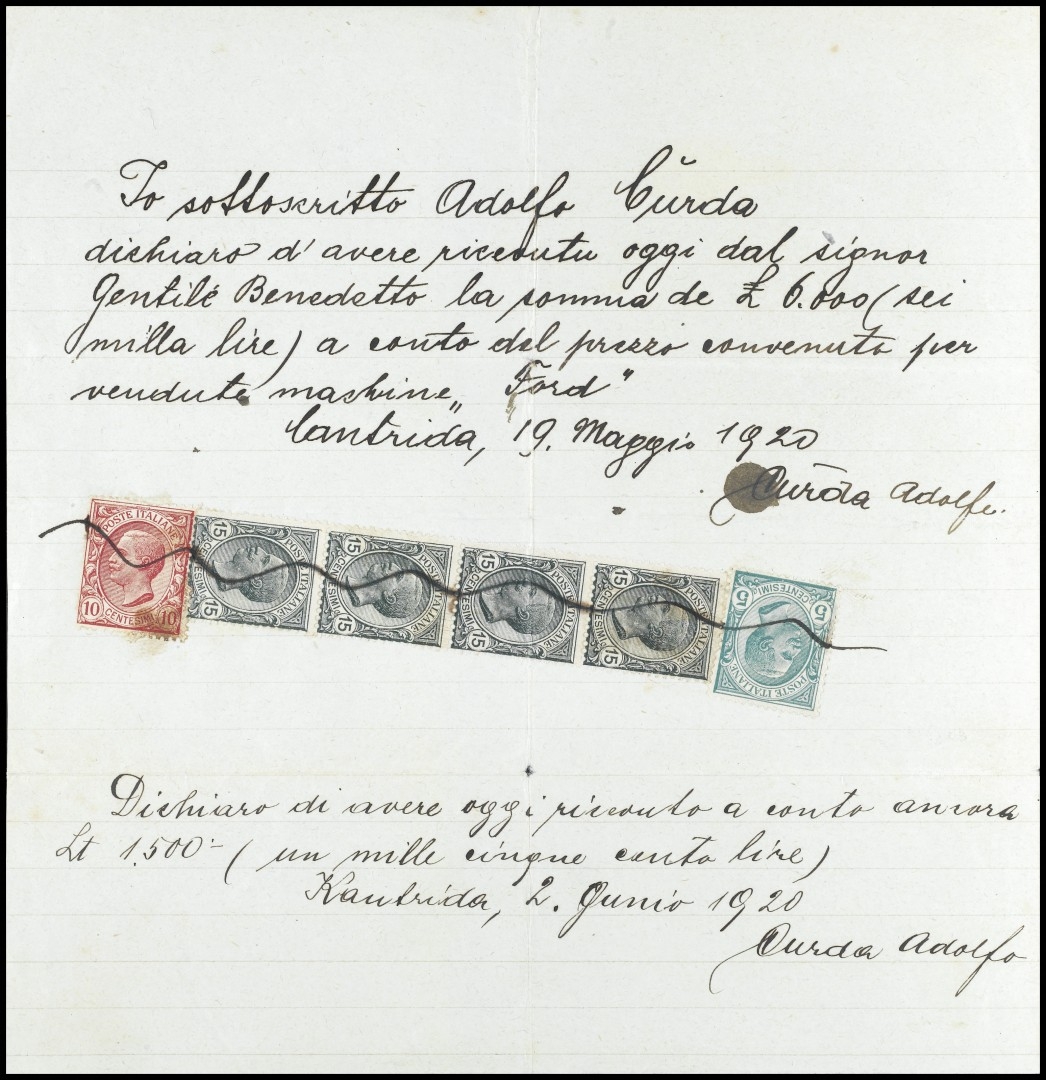 Io sottoscritto Adolfo Čurda
dichiaro d'avere riceoutu oggi dal signor
Gentile Benedetto la somma de £ 6.000 (sei
milla lire) a conto del prezzo convenuto per
vendute machine „Ford"
Cantrida, 19. Maggio 1920
Curda Adolfo.
POSTE ITALIANE
10 CENTESIMI 10
15 POSTE ITALIANE
15 CENTESIMI
15 POSTE ITALIANE
15 CENTESIMI
15 POSTE ITALIANE
15 CENTESIMI
15 POSTE ITALIANE
15 CENTESIMI
5 CENTESIMI 5
POSTE ITALIANE
Dichiaro di avere oggi riceuto a conto ancora
Lt 1.500- (un mille cinque cento lire)
Kantrida, 2. Junio 1920
Curda Adolfo